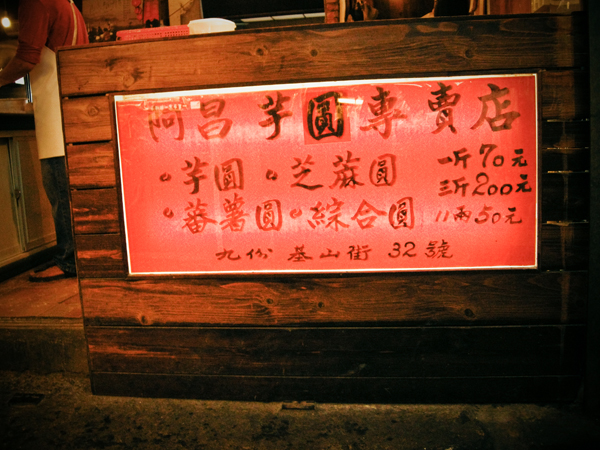 阿昌芋圓專賣店
•芋圓 •芝蔴圓 一斤70元
三斤200元
•蕃薯圓•綜合圓 11兩50元
九份 基山街 32號